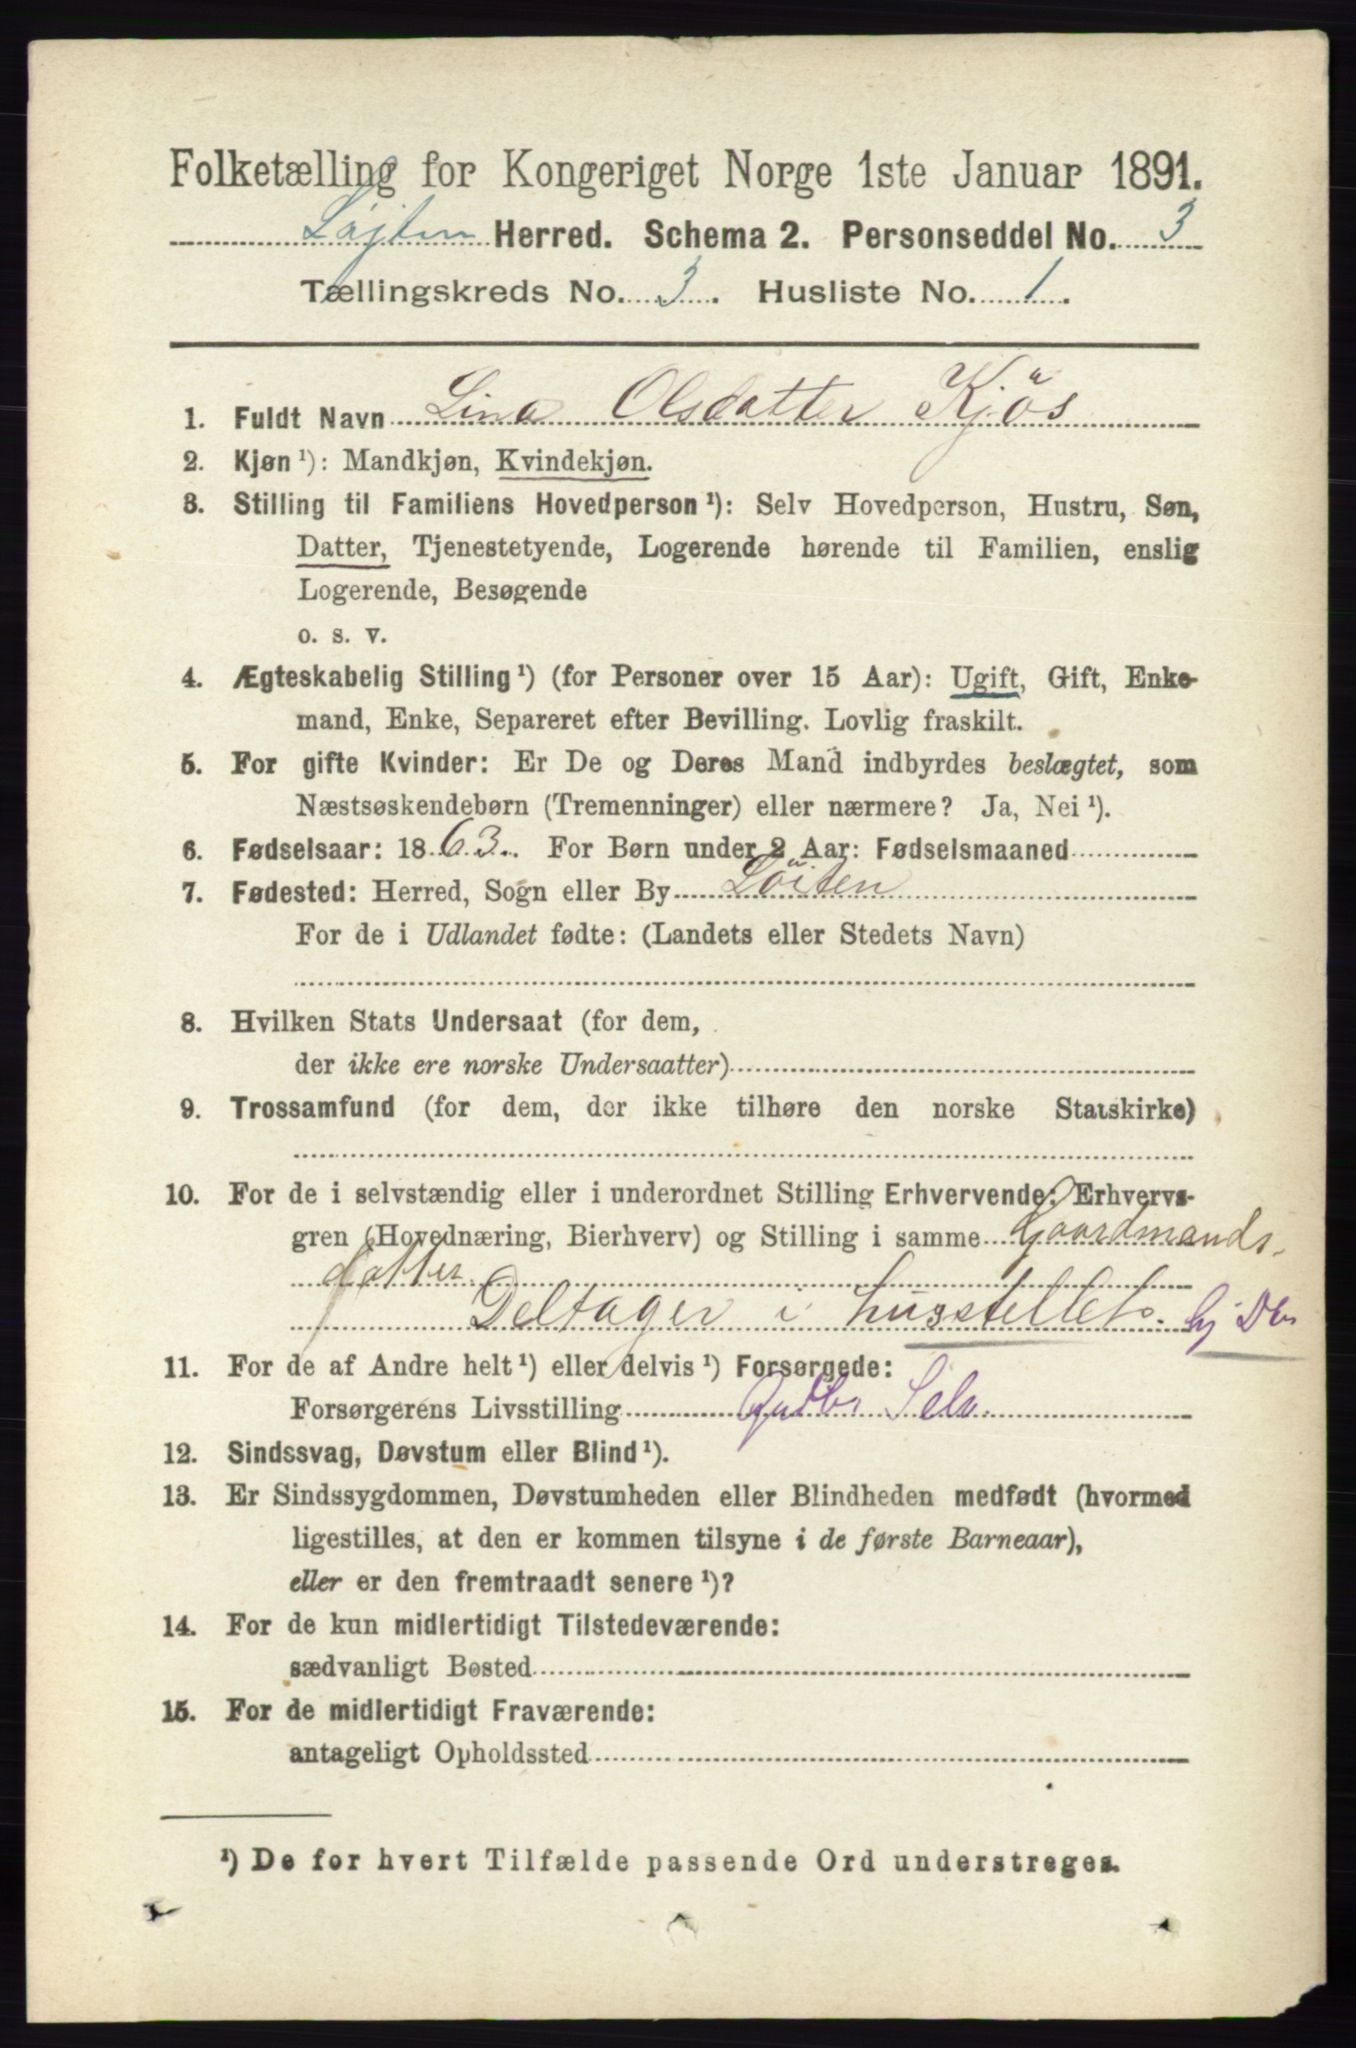 Folketælling for Kongeriget Norge 1ste Januar 1891.
Løjten Herred. Schema 2. Personseddel No. 3
Tællingskreds No. 3. Husliste No. 1.
1. Fuldt Navn Lina Olsdatter Kjös
2. Kjøn ¹): Mandkjøn, Kvindekjøn.
3. Stilling til Familiens Hovedperson ¹): Selv Hovedperson, Hustru, Søn,
Datter, Tjenestetyende, Logerende hørende til Familien, enslig
Logerende, Besøgende
o. s. v.
4. Ægteskabelig Stilling ¹) (for Personer over 15 Aar): Ugift, Gift, Enke-
mand, Enke, Separeret efter Bevilling. Lovlig fraskilt.
5. For gifte Kvinder: Er De og Deres Mand indbyrdes beslægtet, som
Næstsøskendebørn (Tremenninger) eller nærmere? Ja, Nei ¹).
6. Fødselsaar: 1863. For Børn under 2 Aar: Fødselsmaaned
7. Fødested: Herred, Sogn eller By Löiten
For de i Udlandet fødte: (Landets eller Stedets Navn)
8. Hvilken Stats Undersaat (for dem,
der ikke ere norske Undersaatter)
9. Trossamfund (for dem, der ikke tilhøre den norske Statskirke)
10. For de i selvstændig eller i underordnet Stilling Erhvervende: Erhvervs-
gren (Hovednæring, Bierhverv) og Stilling i samme Gaardmands-
datter
Deltager i husstellet.
11. For de af Andre helt ¹) eller delvis ¹) Forsørgede:
Forsørgerens Livsstilling Gdbr Selv.
12. Sindssvag, Døvstum eller Blind ¹).
13. Er Sindssygdommen, Døvstumheden eller Blindheden medfødt (hvormed
ligestilles, at den er kommen tilsyne i de første Barneaar),
eller er den fremtraadt senere ¹)?
14. For de kun midlertidigt Tilstedeværende:
sædvanligt Bosted
15. For de midlertidigt Fraværende:
antageligt Opholdssted
¹) De for hvert Tilfælde passende Ord understreges.